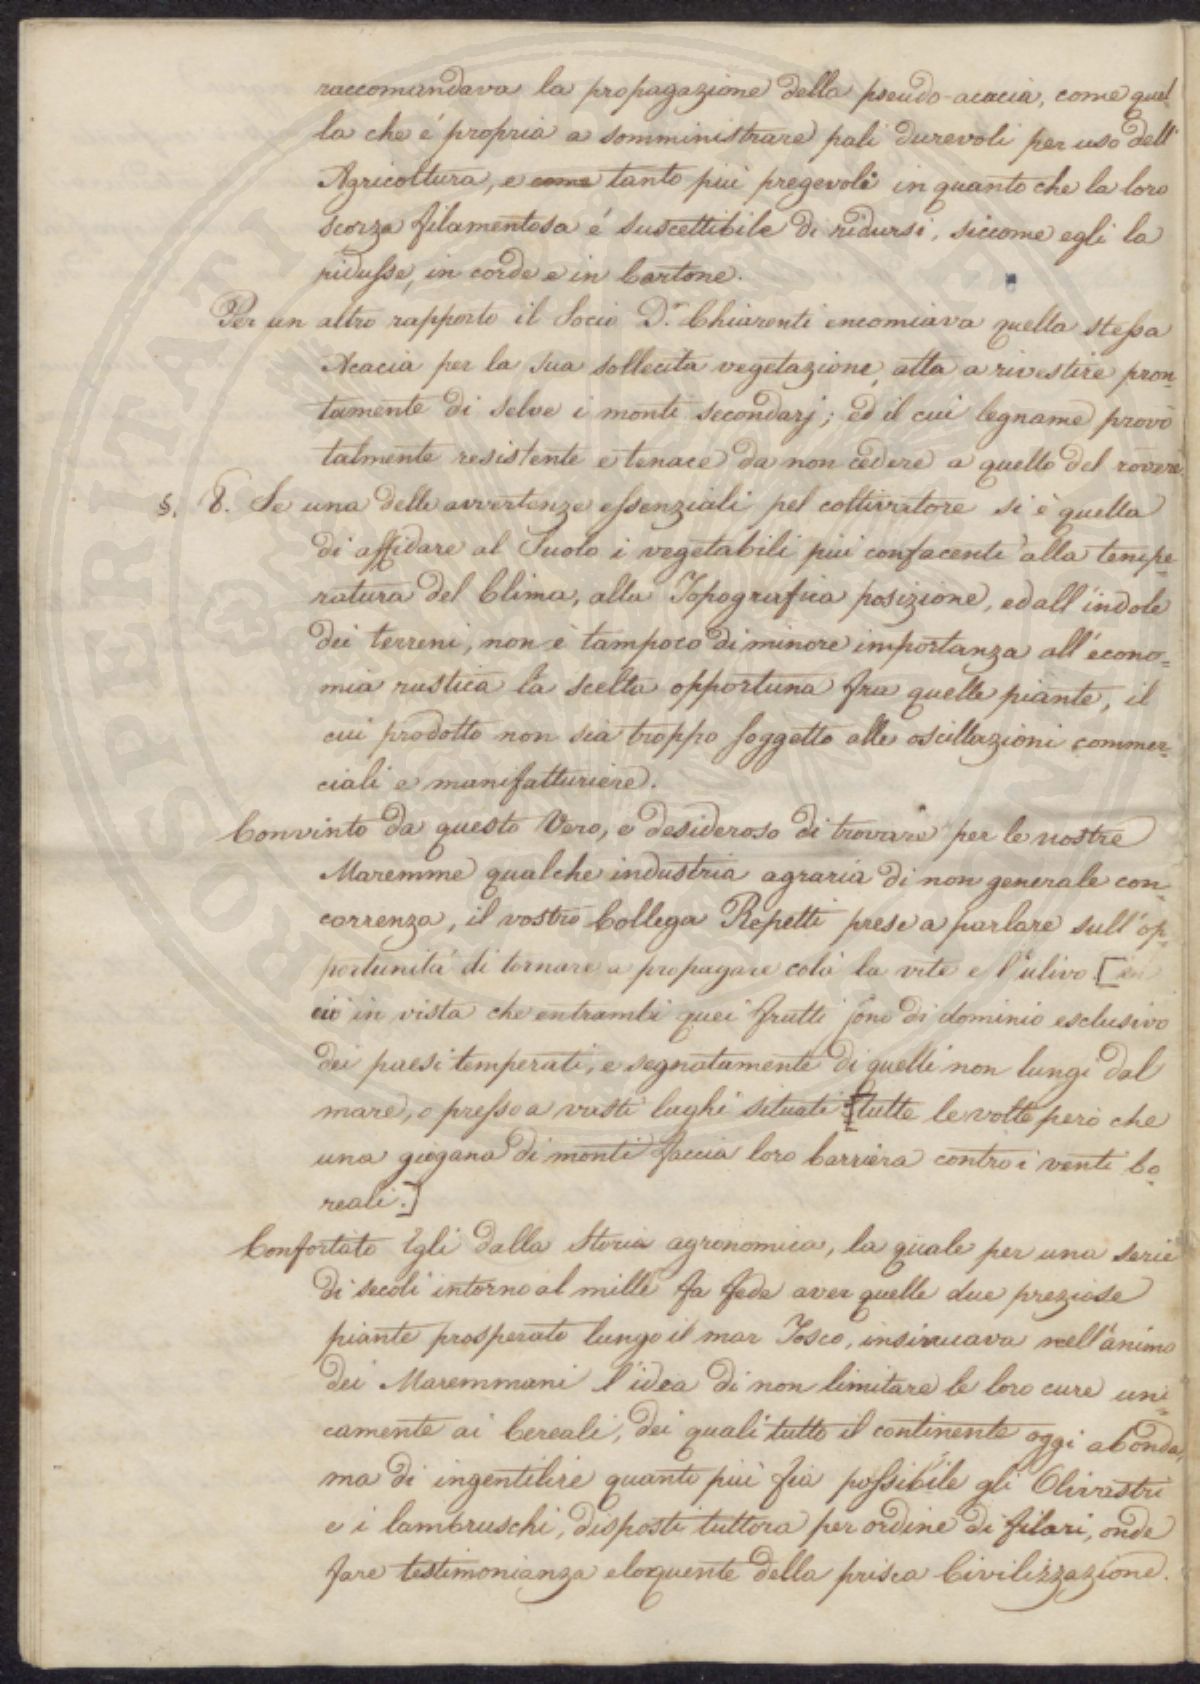 raccomandava la propagazione della pseudo-acacia, come quel
la che é propria a somministrare pali durevoli per uso dell'
Agricoltura, e come tanto piú pregevoli in quanto che la loro
scorza filamentosa é suscettibile di ridursi, siccome egli la
ridusse, in corde e in Cartone.
Per un altro rapporto il Socio D.r Chiarenti encomiava quella stessa
Acacia per la sua sollecita vegetazione, atta a rivestire pron=
tamente di selve i monti secondarj; ed il cui legname provò
talmente resistente e tenace da non cedere a quello del rovere
§. 8. Se una delle avvertenze essenziali pel coltivatore si è quella
di affidare al Suolo i vegetabili piú confacenti alla tempe=
ratura del Clima, alla Topografica posizione, ed all'indole
dei terreni, non è tampoco di minore importanza all'econo=
mia rustica la scelta opportuna fra quelle piante, il
cui prodotto non sia troppo soggetto alle oscillazioni commer=
ciali e manifatturiere.
Convinto da questo Vero, e desideroso di trovare per le nostre
Maremme qualche industria agraria di non generale con=
correnza, il vostro Collega Repetti prese a parlare sull'op=
portunitá di tornare a propagare colá la vite e l'ulivo. [in
ció in vista che entrambi quei frutti sono di dominio esclusivo
dei paesi temperati, e segnatamente di quelli non lungi dal
mare, o presso a vasti laghi situati: [tutte le volte peró che
una giogana di monti faccia loro barriera contro i venti bo=
reali.]
Confortato Egli dalla Storia agronomica, la quale per una serie
di secoli intorno al mille fa fede aver quelle due preziose
piante prosperato lungo il mar Tosco, insinuava nell'animo
dei Maremmani l'idea di non limitare le loro cure uni=
camente ai Cereali, dei quali tutto il continente oggi abonda,
ma di ingentilire quanto piú fia possibile gli Olivastri
e i lambruschi, disposti tuttora per ordine di filari, onde
fare testimonianza eloquente della prisca Civilizzazione.
PROSPERITATI